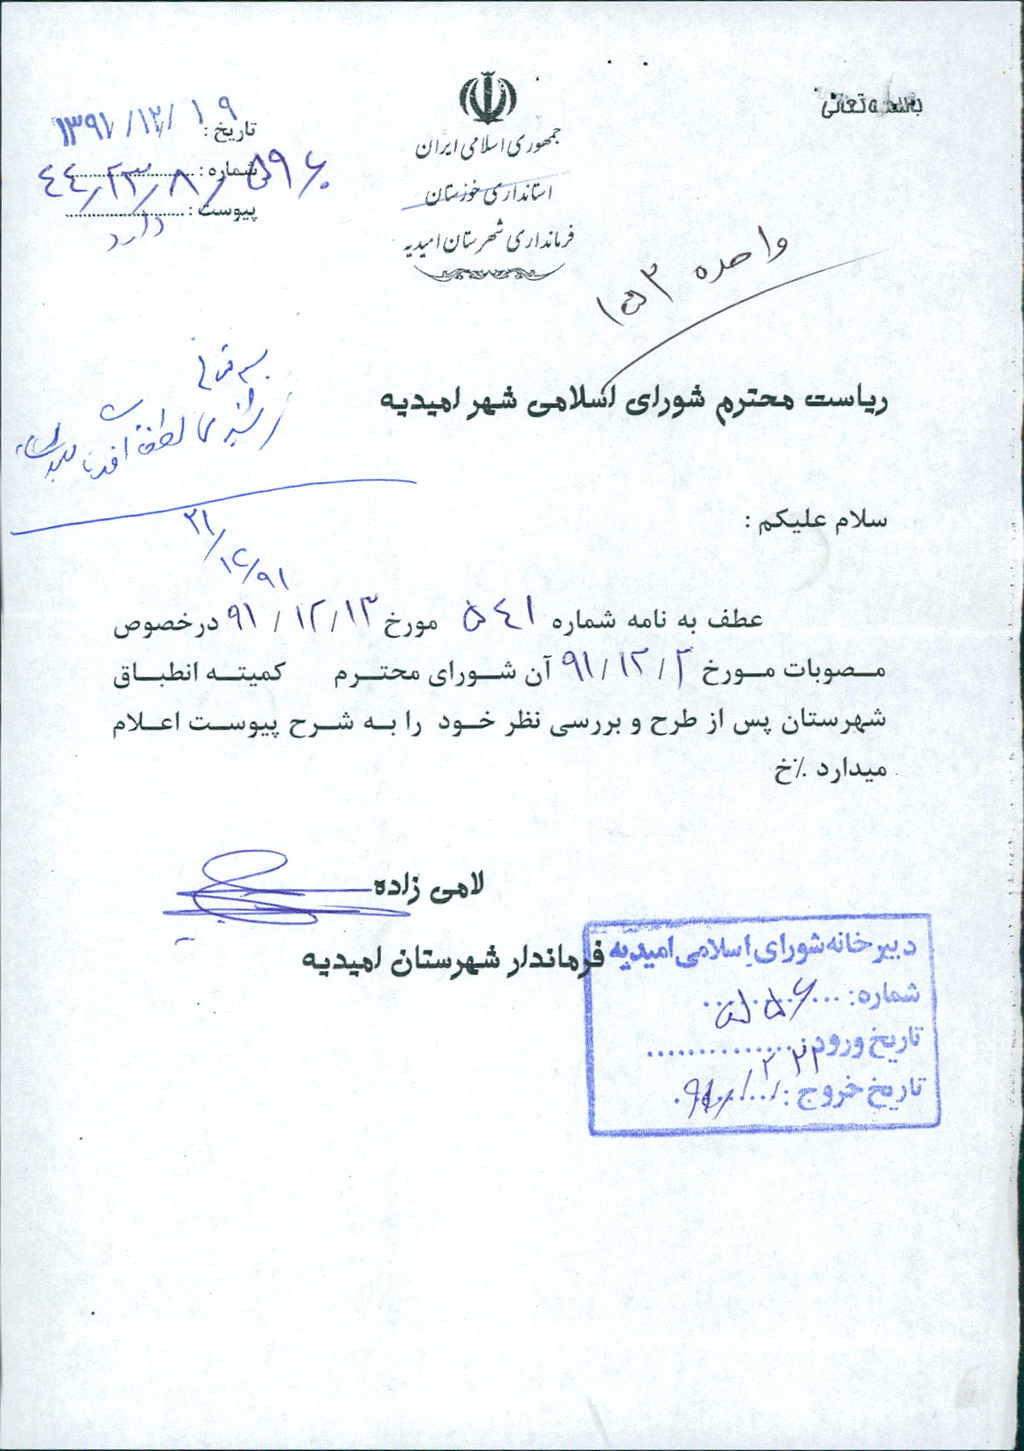 بسمه تعالی
جمهوری اسلامی ایران
استانداری خوزستان
فرمانداری شهرستان امیدیه
تاریخ : ۱۳۹۱/۱۲/۱۹
شماره : ۴۴/۲۳/۸/۵۹۶۰
پیوست : دارد
واحده ۱۵۳
ریاست محترم شورای اسلامی شهر امیدیه
لطفا
۲۱/۱۲/۹۱
سلام علیکم :
عطف به نامه شماره ۵۴۱ مورخ ۹۱/۱۲/۱۳ درخصوص
مصوبات مورخ ۹۱/۱۲/۳ آن شورای محترم کمیته انطباق
شهرستان پس از طرح و بررسی نظر خود را به شرح پیوست اعلام
میدارد ٪خ
لامی زاده
فرماندار شهرستان امیدیه
دبیرخانه شورای اسلامی امیدیه
شماره: ۵۵۶
تاریخ ورود:
تاریخ خروج: